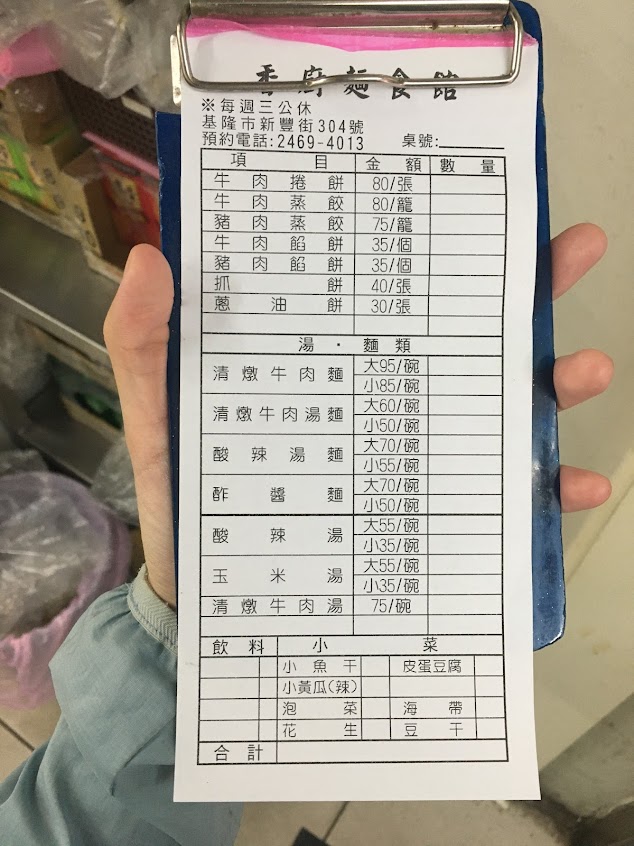 香廚麵食館
※每週三公休
基隆市新豐街304號
預約電話:2469-4013 桌號:
項目 金額 數量
牛肉捲餅 80/張
牛肉蒸餃 80/籠
豬肉蒸餃 75/籠
牛肉餡餅 35/個
豬肉餡餅 35/個
抓餅 40/張
蔥油餅 30/張
湯・麵類
清燉牛肉麵 大95/碗
小85/碗
清燉牛肉湯麵 大60/碗
小50/碗
酸辣湯麵 大70/碗
小55/碗
酢醬麵 大70/碗
小50/碗
酸辣湯 大55/碗
小35/碗
玉米湯 大55/碗
小35/碗
清燉牛肉湯 75/碗
飲料 小菜
小魚干 皮蛋豆腐
小黃瓜(辣)
泡菜 海帶
花生 豆干
合計